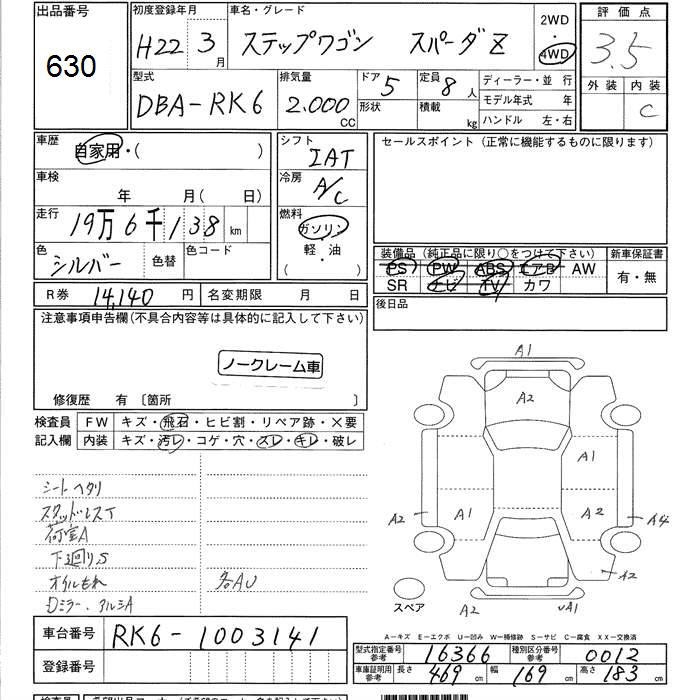 出品番号 630
初度登録年月 H22 3月
車名・グレード ステップワゴン スパーダZ
2WD 4WD
評価点 3.5
外装 内装 C
型式 DBA-RK6
排気量 2.000 CC
ドア 5 形状
定員 8 人 積載 kg
ディーラー・並行
モデル年式 年
ハンドル 左・右
車歴 自家用・( )
シフト IAT
セールスポイント (正常に機能するものに限ります)
車検 年 月( 日)
冷房 A/C
走行 19万6千138 km
燃料 ガソリン 軽・油 ( ・ )
色 シルバー 色替 色コード
装備品 (純正品に限り○をつけて下さい) 新車保証書
PS PW ABS エアB AW 有・無
SR ナビ TV カワ
R券 14,140 円 名変期限 月 日
後日品
注意事項申告欄(不具合内容等は具体的に記入して下さい)
ノークレーム車
修復歴 有 〔箇所 〕
検査員 FW キズ・飛石・ヒビ割・リペア跡・×要
記入欄 内装 キズ・汚レ・コゲ・穴・スレ・キレ・破レ
シートヘタリ
スタッドレスT
荷室A
下廻りS
オイルもれ 各AU
Dミラー、アルミA
A1
A2
A1
A2 A1 A2 A4
A2
A2 UA1
スペア
A-キズ E-エクボ U-凹み W-補修跡 S-サビ C-腐食 XX-交換済
車台番号 RK6-1003141
登録番号
型式指定番号 参考 16366 種別区分番号 参考 0012
車庫証明用 参考 長さ 469 cm 幅 169 cm 高さ 183 cm